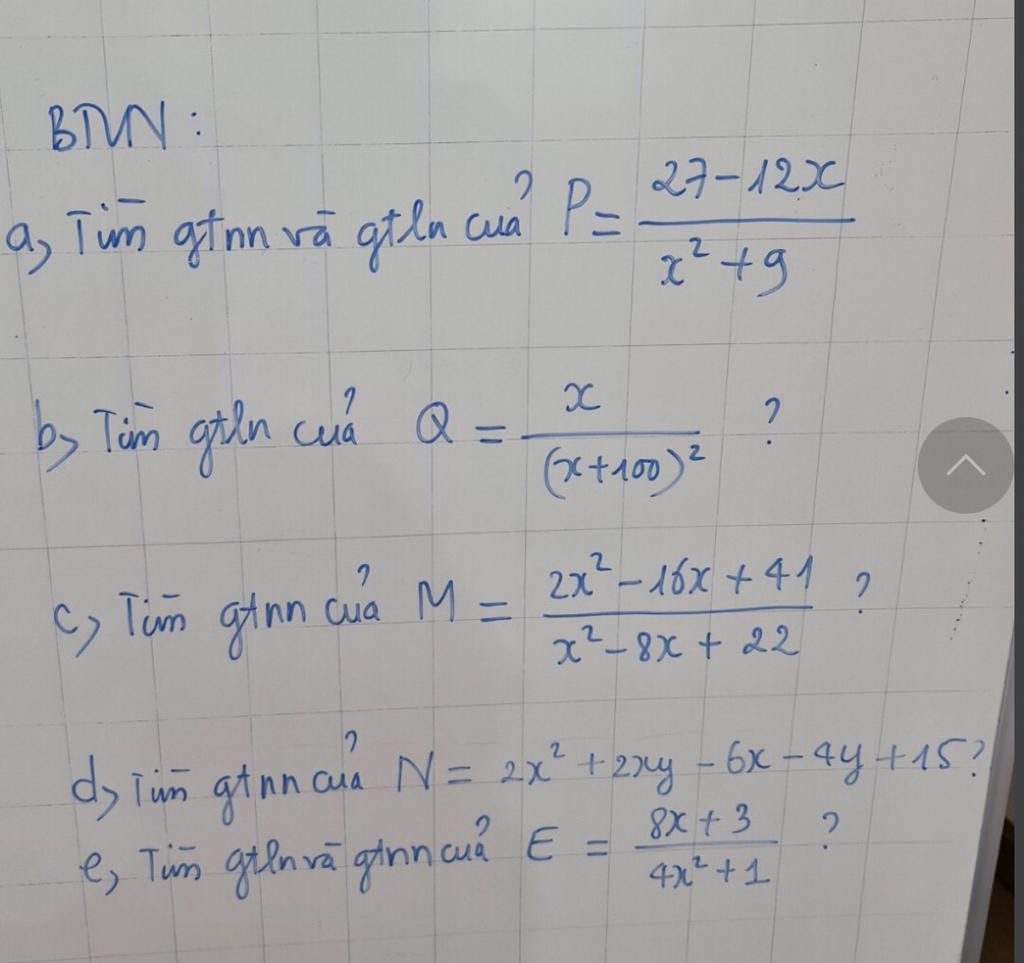 BTVN:
a, Tìm gtnn và gtln của P = (27 - 12x)/(x² + 9)
b, Tìm gtln của Q = x/(x+100)² ?
c, Tìm gtnn của M = (2x² - 16x + 41)/(x² - 8x + 22) ?
d, Tìm gtnn của N = 2x² + 2xy - 6x - 4y + 15?
e, Tìm gtln và gtnn của E = (8x + 3)/(4x² + 1) ?